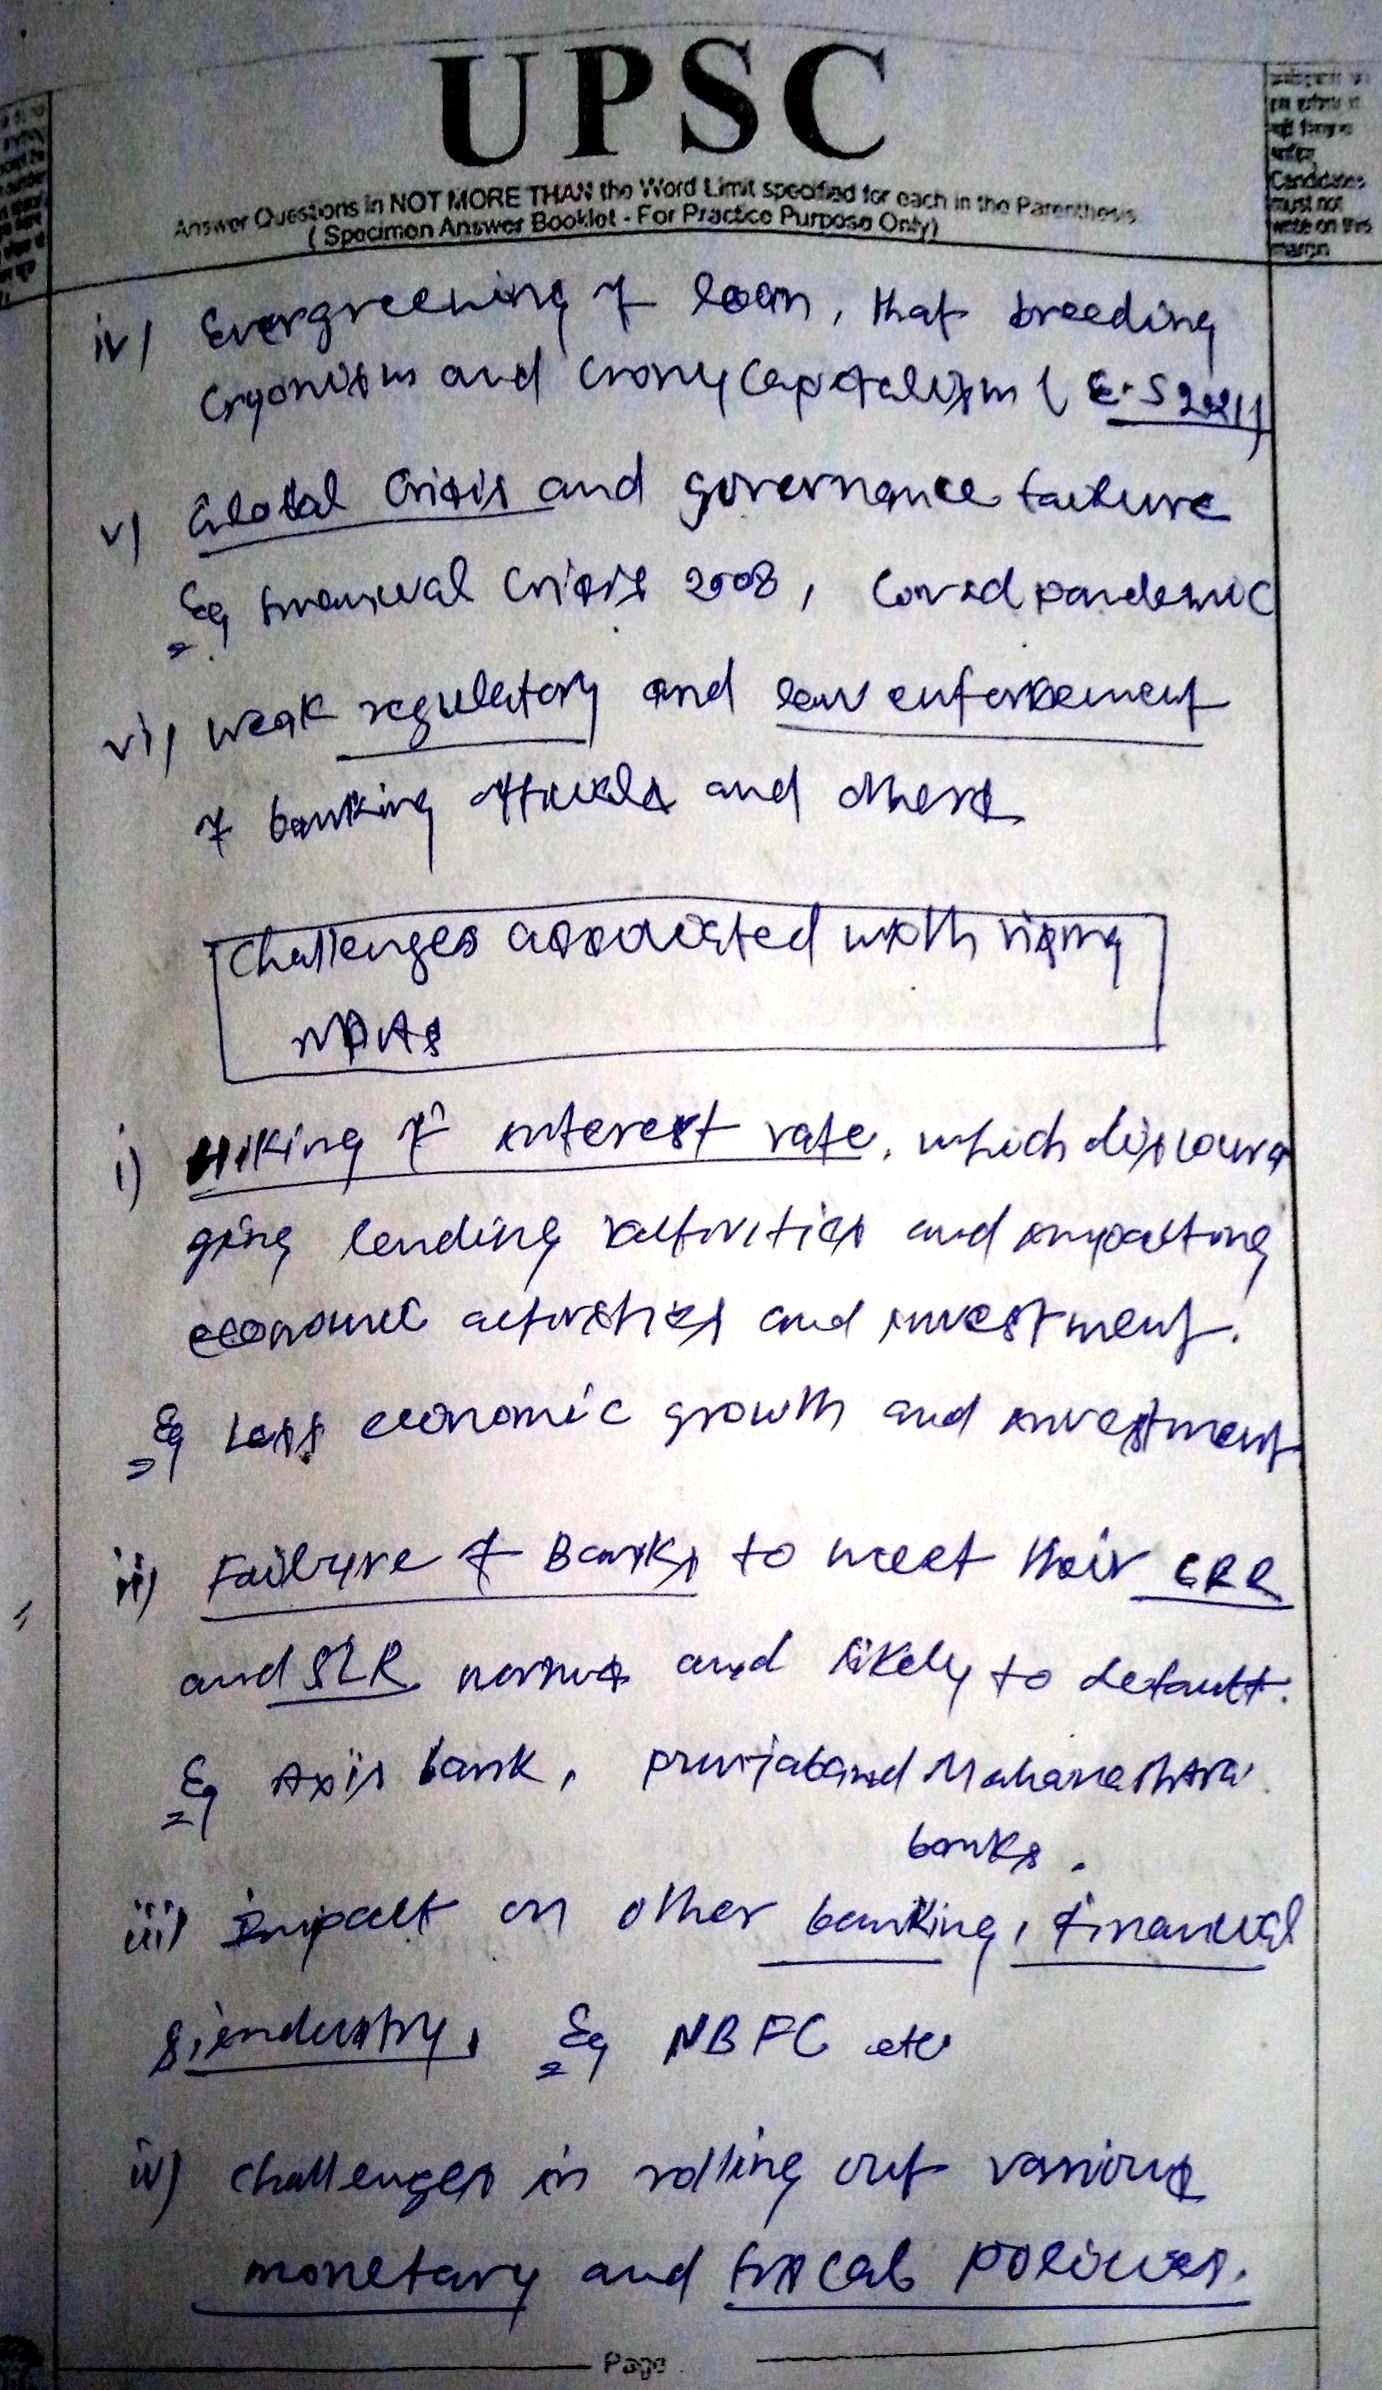 UPSC
Answer Questions in NOT MORE THAN the Word Limit specified for each in the Parenthesis
( Specimen Answer Booklet - For Practice Purpose Only)
Candidates
must not
write on this
margin
iv) Evergreening of loan, that breeding
Cryonism and crony capitalism ( E.S 2021)
v) Global Crisis and governance failure
Eg financial Crisis 2008, Covid pandemic
vi) weak regulatory and law enforcement
of banking officials and others
Challenges associated with rising
NPAs
i) Hiking of interest rate, which discoura
ging lending activities and impacting
economic activities and investment.
Eg Less economic growth and investment
ii) Failure of Banks to meet their CRR
and SLR norms and likely to default.
Eg Axis bank, punjab and Maharashtra
banks.
iii) Impact on other banking, financial
& industry. Eg NBFC etc
iv) challenges in rolling out various
monetary and fiscal policies.
Page